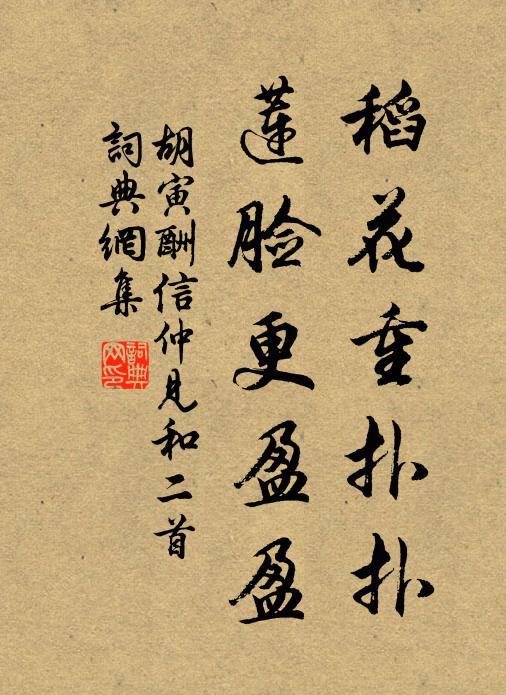 稻花重扑扑
莲脸更盈盈
胡寅酬信仲见和二首
詞典網集
詞典网印